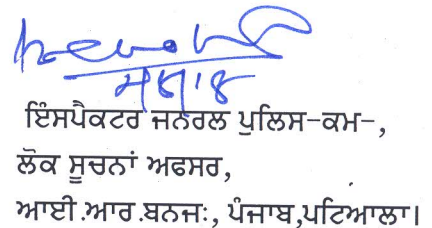 ਇੰਸਪੈਕਟਰ ਜਨਰਲ ਪੁਲਿਸ-ਕਮ-,
ਲੋਕ ਸੂਚਨਾਂ ਅਫਸਰ,
ਆਈ.ਆਰ.ਬਨਜ:, ਪੰਜਾਬ,ਪਟਿਆਲਾ।